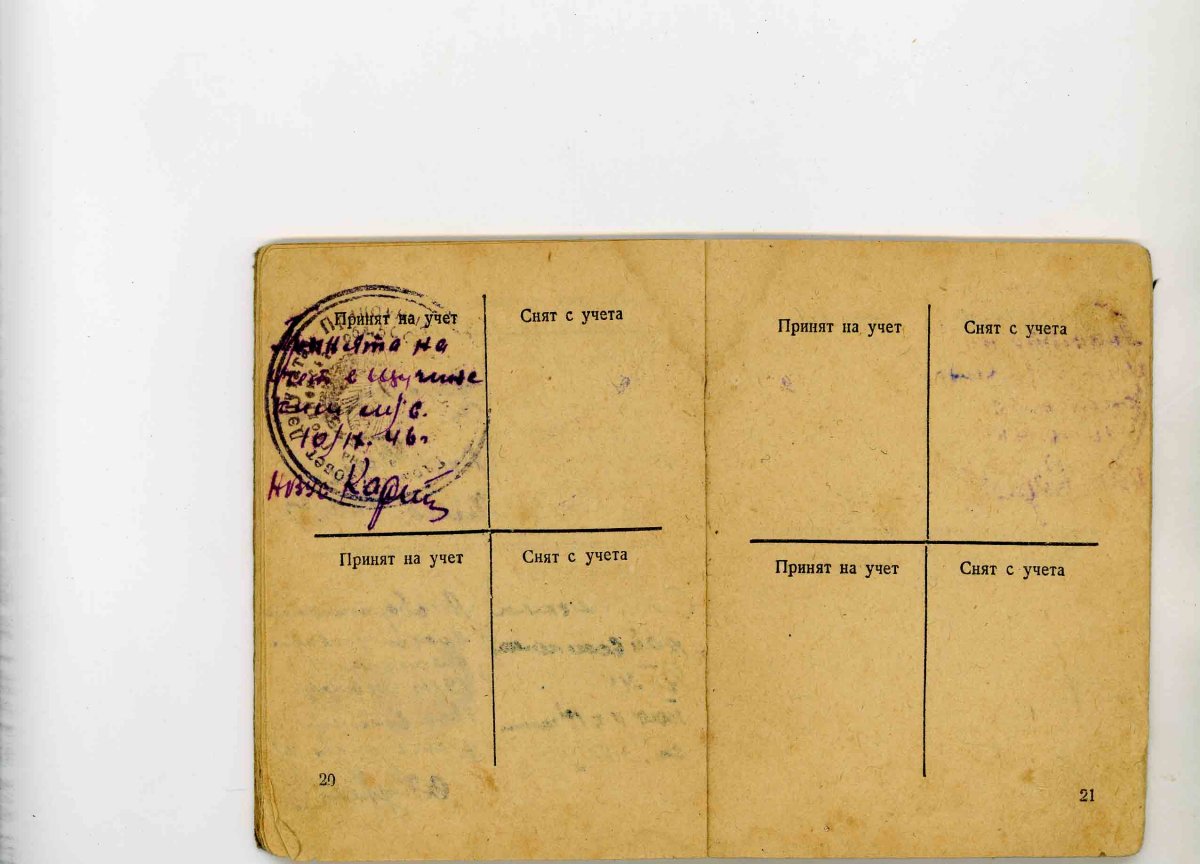 Принят на учет
Снят с учета
Принята на
учет в Щучинс
м/с.
10/IX. 46 г
Принят на учет
Снят с учета
20
Принят на учет
Снят с учета
Принят на учет
Снят с учета
21